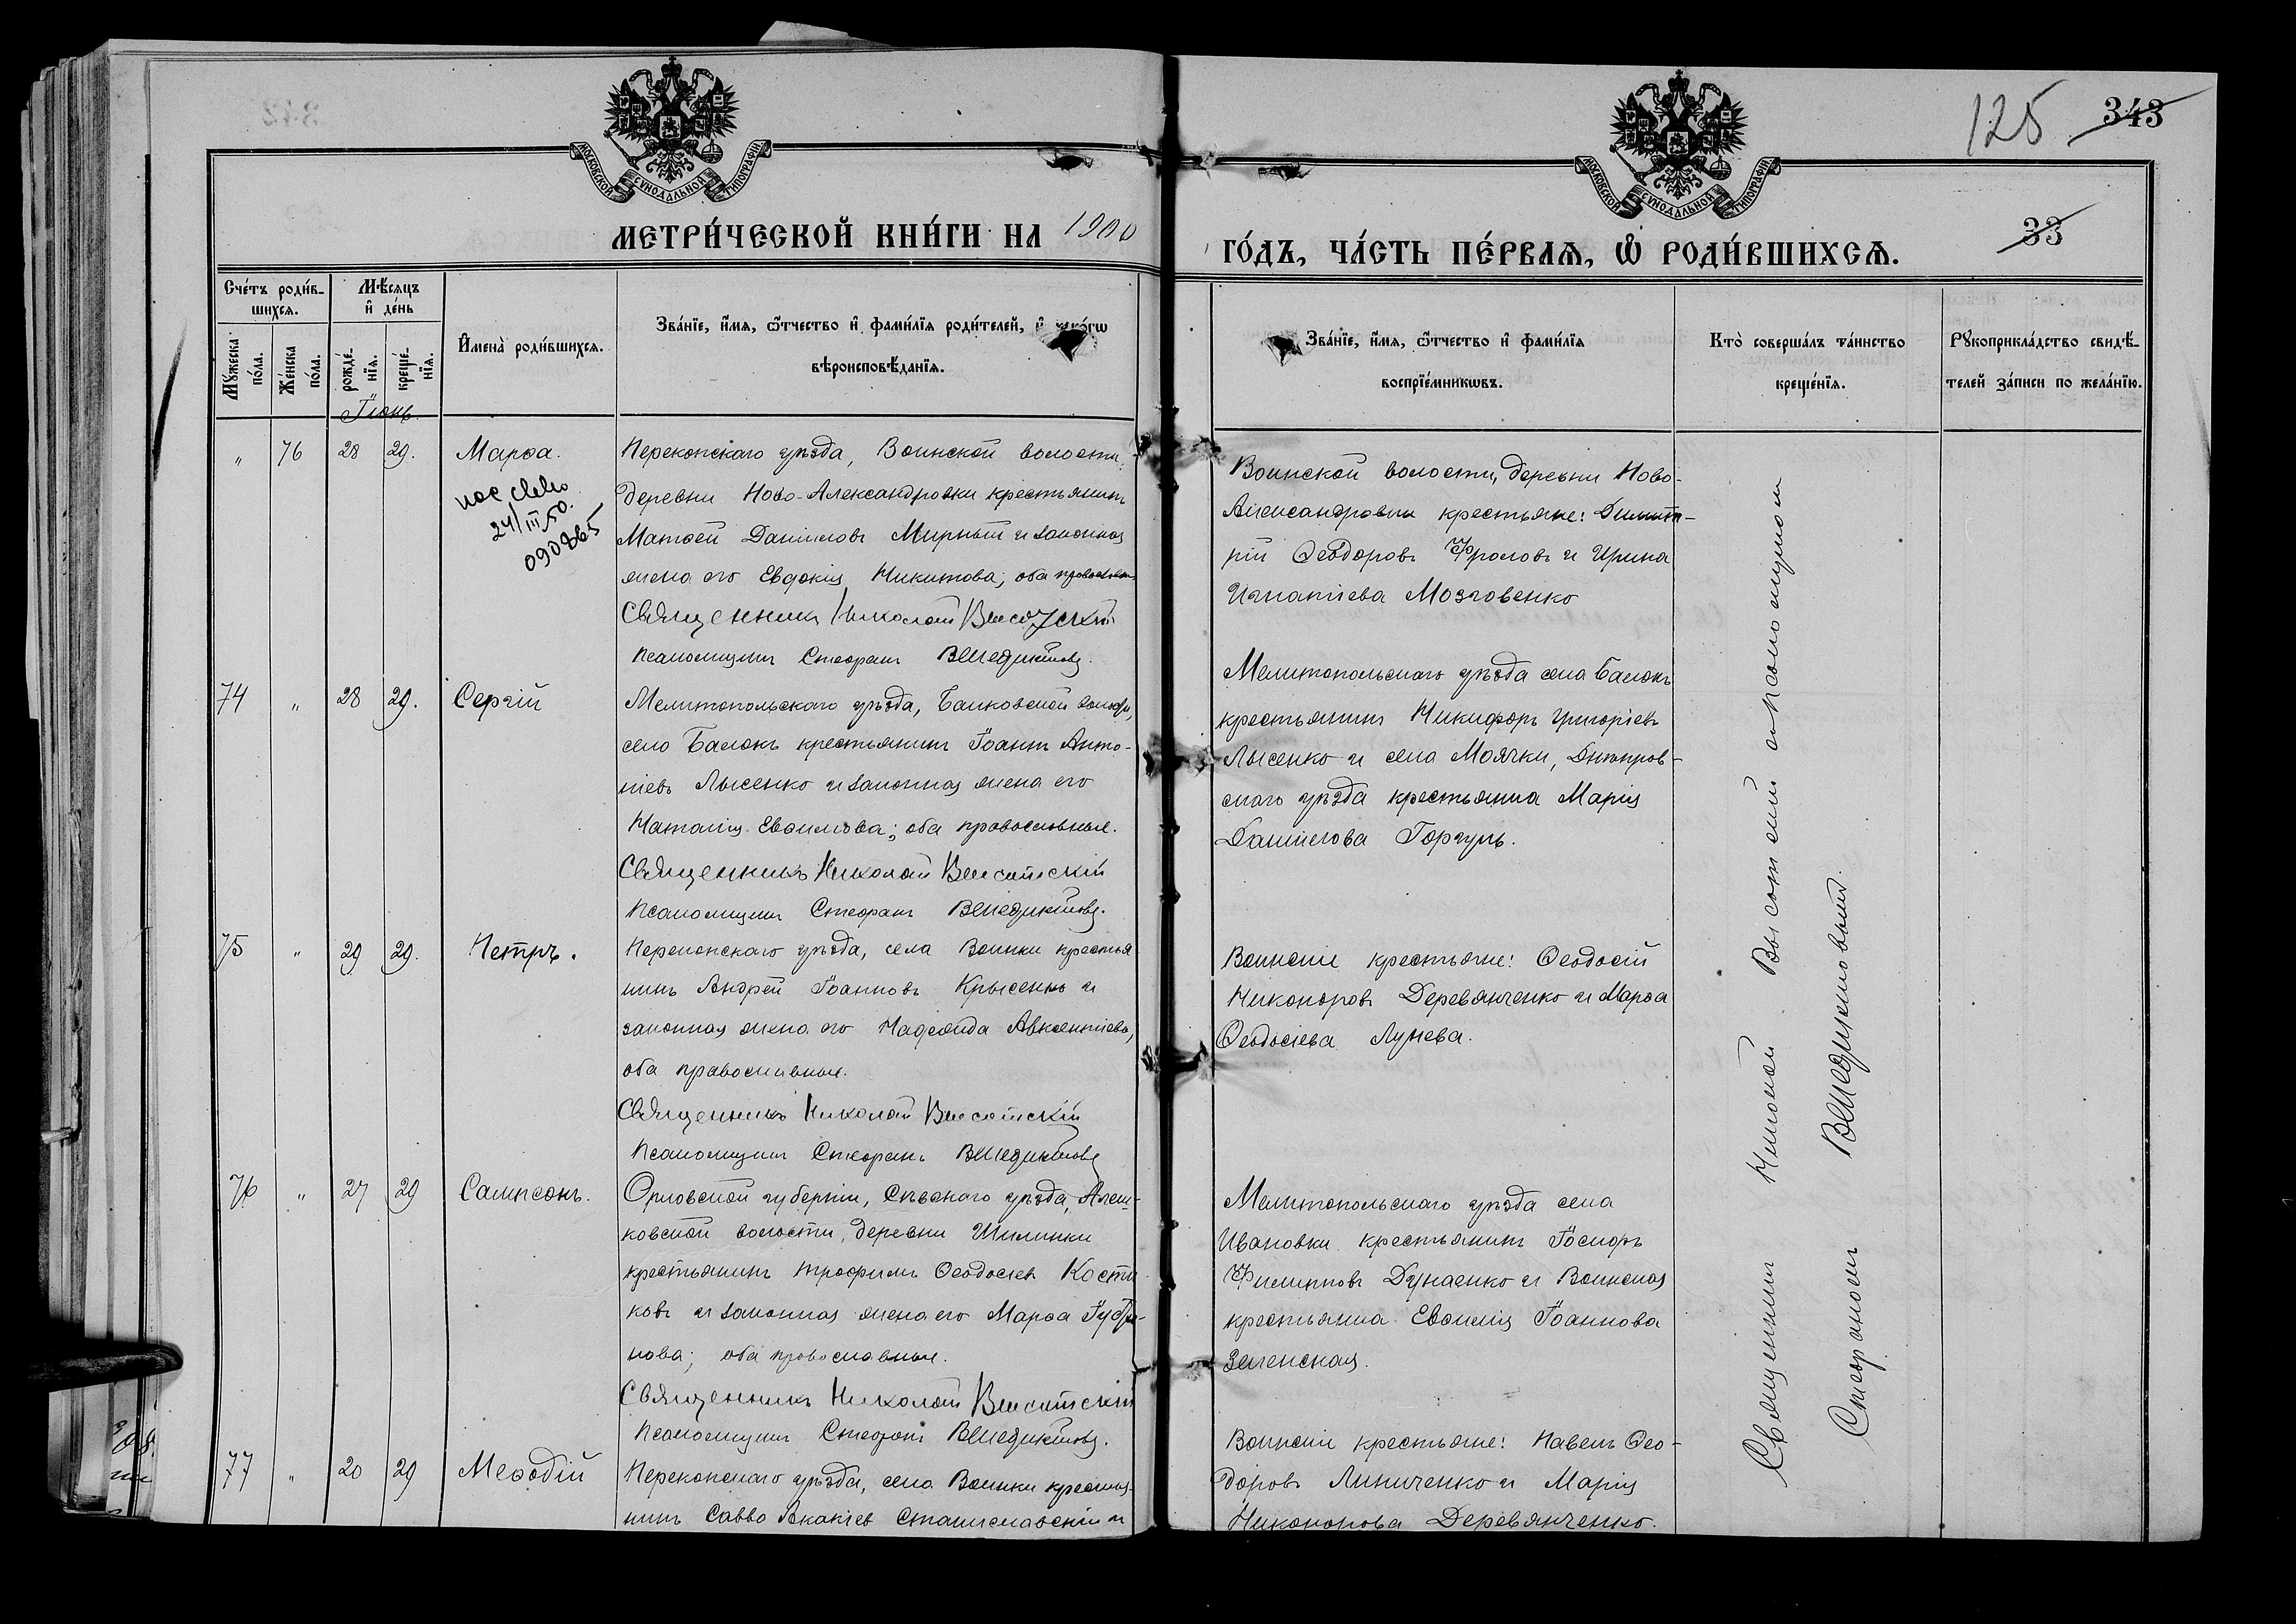 125 343
МОСКОВСКОЙ СѴНОДАЛЬНОЙ ТИПОГРАФІИ
МОСКОВСКОЙ СѴНОДАЛЬНОЙ ТИПОГРАФІИ
МЕТРИ́ЧЕСКОЙ КНИ́ГИ НА 1900
ГО́ДЪ, ЧА́СТЬ ПЕ́РВАѦ, Ѡ҆ РОДИ́ВШИХСѦ.
33
Сче́тъ роди́в-
шихсѧ.
Мꙋ́жеска
по́ла.
Же́нска
по́ла.
Мѣ́сѧцъ
и҆ де́нь
рожде́-
нїѧ.
креще́-
нїѧ.
И҆мена̀ роди́вшихсѧ.
Зва́нїе, и҆́мѧ, ѻ҆́тчество и҆ фами́лїѧ роди́телей, и҆
вѣроисповѣ́данїѧ.
Зва́нїе, и҆́мѧ, ѻ҆́тчество и҆ фами́лїѧ
воспрїе́мникѡвъ.
Кто̀ соверша́лъ та́инство
креще́нїѧ.
Рꙋкоприкла́дство свидѣ́-
телей за́писи по жела́нїю.
Іюнь.
" 76 28 29. Марѳа.
24/III 50.
090865
Перекопскаго уѣзда, Воинской волости,
деревни Ново-Александровки крестьянинъ
Матѳей Даніиловъ Мирный и законная
жена его Евдокія Никитова; оба православн
Священникъ Николай Высотскій
Псаломщикъ Стефанъ Венедиктовъ.
Воинской волости, деревни Ново-
Александровки крестьяне: Димит-
рій Ѳеодоровъ Фроловъ и Ирина
Игнатіева Мозговенко
74 " 28 29. Сергій
Мелитопольскаго уѣзда, Балковской волости,
село Балокъ крестьянинъ Іоаннъ Анто-
ніевъ Лысенко и законная жена его
Наталія Евѳимова; оба православные.
Священникъ Николай Высотскій
Псаломщикъ Стефанъ Венедиктовъ.
Мелитопольскаго уѣзда села Балокъ
крестьянинъ Никифоръ Григоріевъ
Лысенко и села Маячки, Днѣпров-
скаго уѣзда крестьянка Марія
Даніилова Горгуль.
75 " 29 29. Петръ.
Перекопскаго уѣзда, села Воинки крестья
нинъ Андрей Іоанновъ Крысенко и
законная жена его Надежда Авксентіева,
оба православные.
Священникъ Николай Высотскій
Псаломщикъ Стефанъ Венедиктовъ
Воинскіе крестьяне: Ѳеодосій
Никоноровъ Деревянченко и Марѳа
Ѳеодосіева Лунева.
76 " 27 29 Сампсонъ.
Орловской губерніи, Сѣвскаго уѣзда, Алеш-
ковской волости, деревни Шилинки
крестьянинъ Трофимъ Ѳеодосіев Кости
ковъ и законная жена его Марѳа
нова; оба православные.
Священникъ Николай Высотскій
Псаломщикъ Стефанъ Венедиктовъ.
Мелитопольскаго уѣзда села
Ивановки крестьянинъ Іосифъ
Филипповъ Дунаенко и Воинская
крестьянка Евѳимія Іоаннова
Зеленская.
77 " 20 29 Меѳодій
Перекопскаго уѣзда, села Воинки крестья-
нинъ Савва Акакіев Станиславскій и
Воинскіе крестьяне: Павелъ Ѳео-
доровъ Линиченко и Марія
Никонорова Деревянченко.
Священникъ Николай Высотскій съ псаломщикомъ
Стефаномъ Венедиктовымъ.